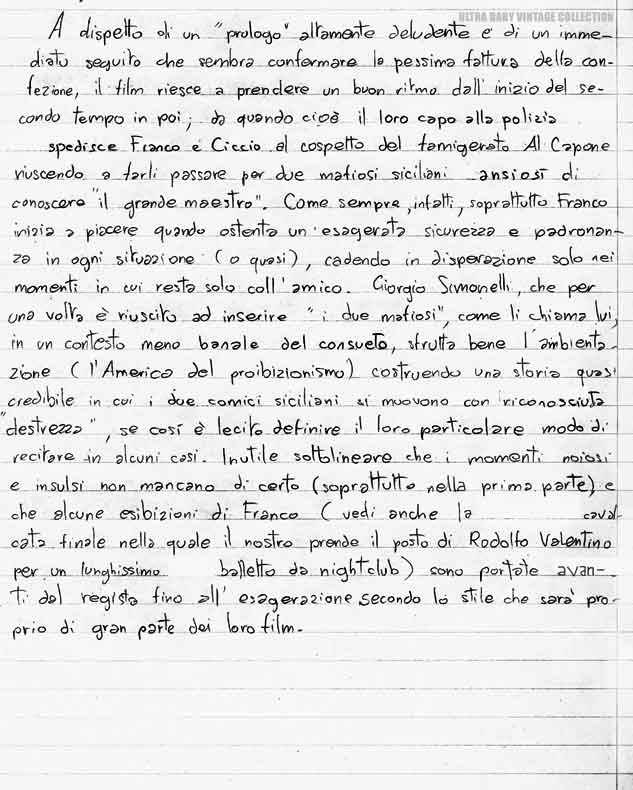 ULTRA BABY VINTAGE COLLECTION
A dispetto di un "prologo" altamente deludente e di un imme-
diato seguito che sembra confermare la pessima fattura della con-
fezione, il film riesce a prendere un buon ritmo dall'inizio del se-
condo tempo in poi, da quando cioè il loro capo alla polizia
spedisce Franco e Ciccio al cospetto del famigerato Al Capone
riuscendo a farli passare per due mafiosi siciliani ansiosi di
conoscere "il grande maestro". Come sempre, infatti, soprattutto Franco
inizia a piacere quando ostenta un'esagerata sicurezza e padronan-
za in ogni situazione (o quasi), cadendo in disperazione solo nei
momenti in cui resta solo coll'amico. Giorgio Simonelli, che per
una volta è riuscito ad inserire "i due mafiosi", come li chiama lui,
in un contesto meno banale del consueto, sfrutta bene l'ambienta-
zione (l'America del proibizionismo) costruendo una storia quasi
credibile in cui i due comici siciliani si muovono con riconosciuta
"destrezza", se così è lecito definire il loro particolare modo di
recitare in alcuni casi. Inutile sottolineare che i momenti noiosi
e insulsi non mancano di certo (soprattutto nella prima parte) e
che alcune esibizioni di Franco (vedi anche la caval
cata finale nella quale il nostro prende il posto di Rodolfo Valentino
per un lunghissimo balletto da nightclub) sono portate avan-
ti dal regista fino all'esagerazione secondo lo stile che sarà pro-
prio di gran parte dei loro film.